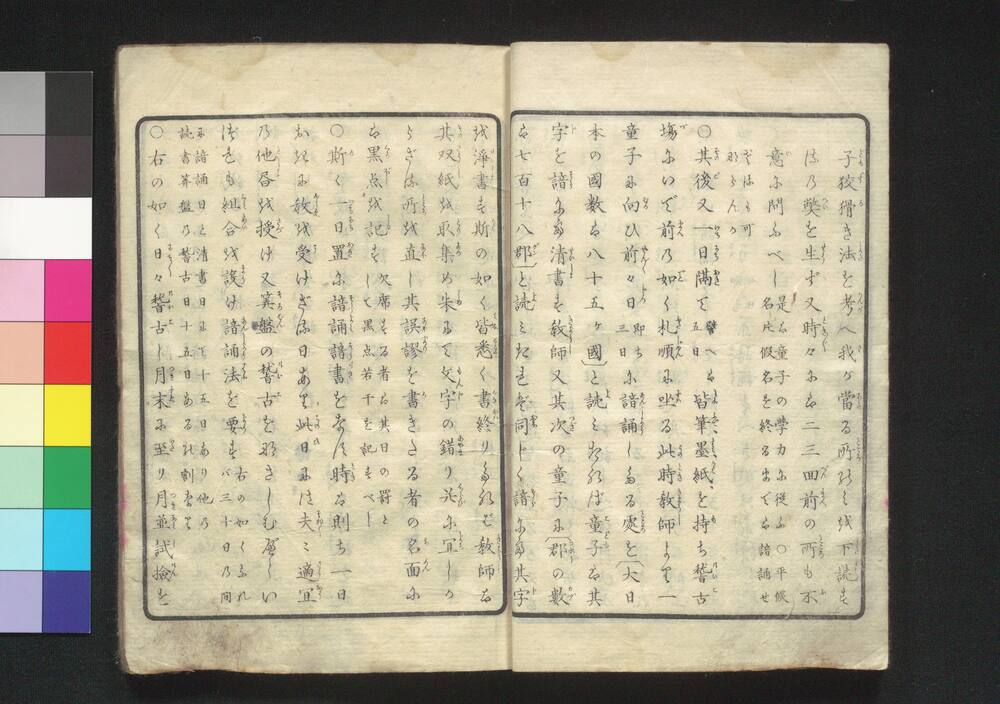 子狡猾き法を考へ我ガ當る所のミを下読す
るの獘を生ず又時々にも二三回前の所も不
意に問ふべし
是は童子の學力に従ふ ○平假
名片假名を終るまでは諳誦せ
ずはる可
○其後又一日隔て
五日
皆筆墨紙を持ち誓古
塲にいで前の如く札順に坐る此時教師より一
童子に向ひ前々日
即ち
三日
に諳誦しする處を〔大日
本の國数は八十五ヶ國〕と読ミたれば童子は其
字を諳にて清書す教師又其次の童子に〔郡の數
は七百十八郡〕と読ミたれば同しく諳にて其字
を淨書す斯の如く皆悉く書終りたれば教師は
其双紙を取集め朱にて文字の錯り并に冝しか
らざる所を直し其誤謬を書きたる者の名面に
は黒点を記す
欠席する者は其日の罸と
して黒点若干を記すべし
○斯く一日置に諳誦諳書をなす時は則ち一日
おきに教を受けざる日あり此日には夫々適宜
の他呑を授け又算盤の誓古を為さしむべし い
づれも組合を設け諳誦法を要す
右の如くなれ
バ三十日の間
に諳誦日と清書日にて十五日あり他の
読書算盤の誓古日十五日ある割なり
○右の如く日々誓古し月末に至り月並試撿を